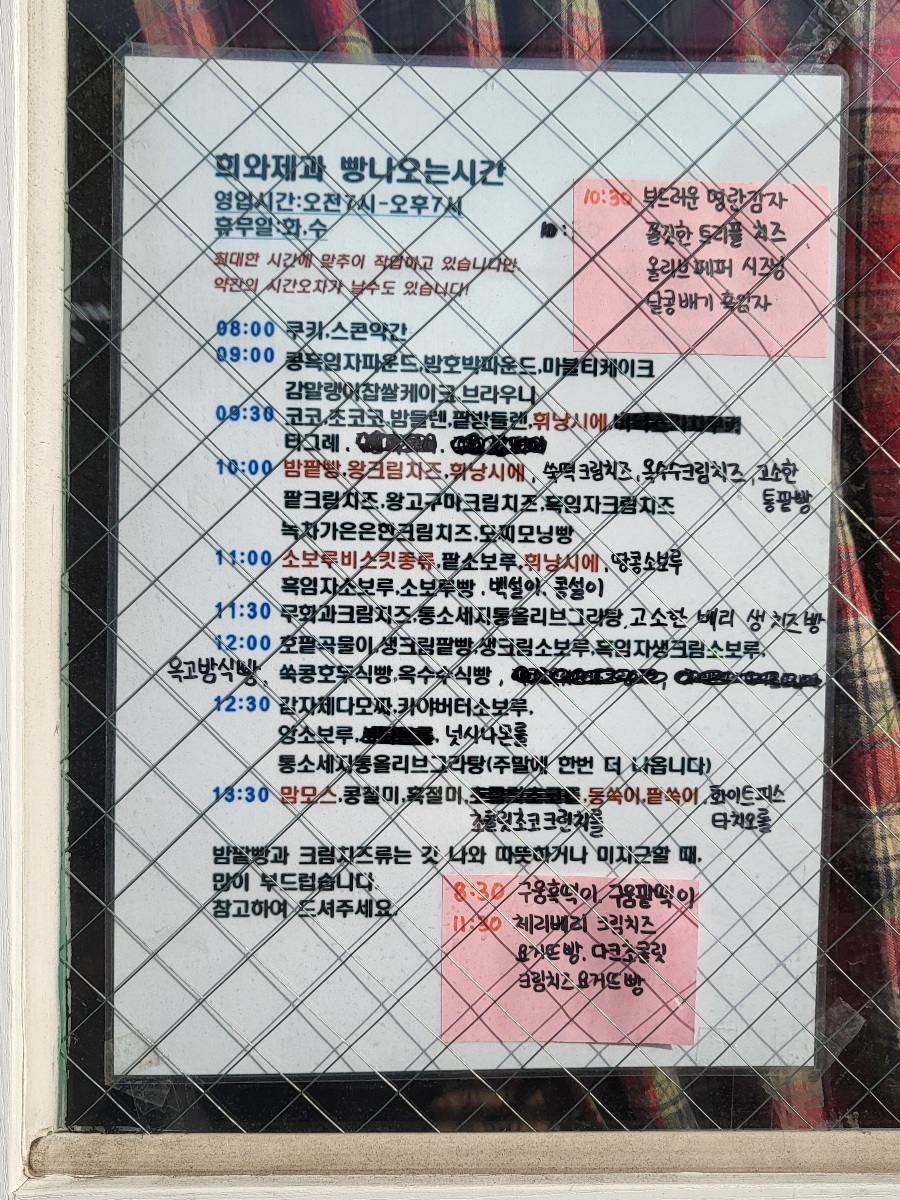 희와제과 빵나오는시간
영업시간:오전7시-오후7시
휴무일:화.수
최대한 시간에 맞추어 작업하고 있습니다만
약간의 시간오차가 날수도 있습니다!
10:30 부드러운 명란감자
쫄깃한 트리플 치즈
올리브페퍼 시즈닝
달콩배기 흑임자
08:00 쿠키.스콘약간
09:00 콩흑임자파운드.밤호박파운드.마블티케이크
감말랭이찹쌀케이크.브라우니
09:30 코코.초코코.밤들렌.팥밤들렌.휘낭시에
타그레.
10:00 밤팥빵.왕크림치즈.휘낭시에, 쑥떡크림치즈,옥수수크림치즈,고소한
통팥빵
팥크림치즈.왕고구마크림치즈.흑임자크림치즈
녹차가은은한크림치즈.모찌모닝빵
11:00 소보루비스킷종류.팥소보루.휘낭시에, 땅콩소보루
흑임자소보루.소보루빵, 백설이. 콩설이
11:30 무화과크림치즈.통소세지통올리브그라탕,고소한 베리 생치즈빵
12:00 호팥곡물이.생크림팥빵.생크림소보루.흑임자생크림소보루.
옥고밤식빵. 쑥콩호두식빵.옥수수식빵,
12:30 감자제다모찌.카야버터소보루.
앙소보루. 넛시나몬롤
통소세지통올리브그라탕(주말에 한번 더 나옵니다)
13:30 맘모스.콩절미.흑절미. 동쑥이.팥쑥이,화이트피스
타치오롤
초콜릿초코크런치롤
밤팥빵과 크림치즈류는 갓 나와 따뜻하거나 미지근할 때.
많이 부드럽습니다.
참고하여 드셔주세요.
8:30 구움흑떡이. 구움팥떡이
11:30 체리베리 크림치즈
요거뜨빵. 다크초콜릿
크림치즈요거뜨빵